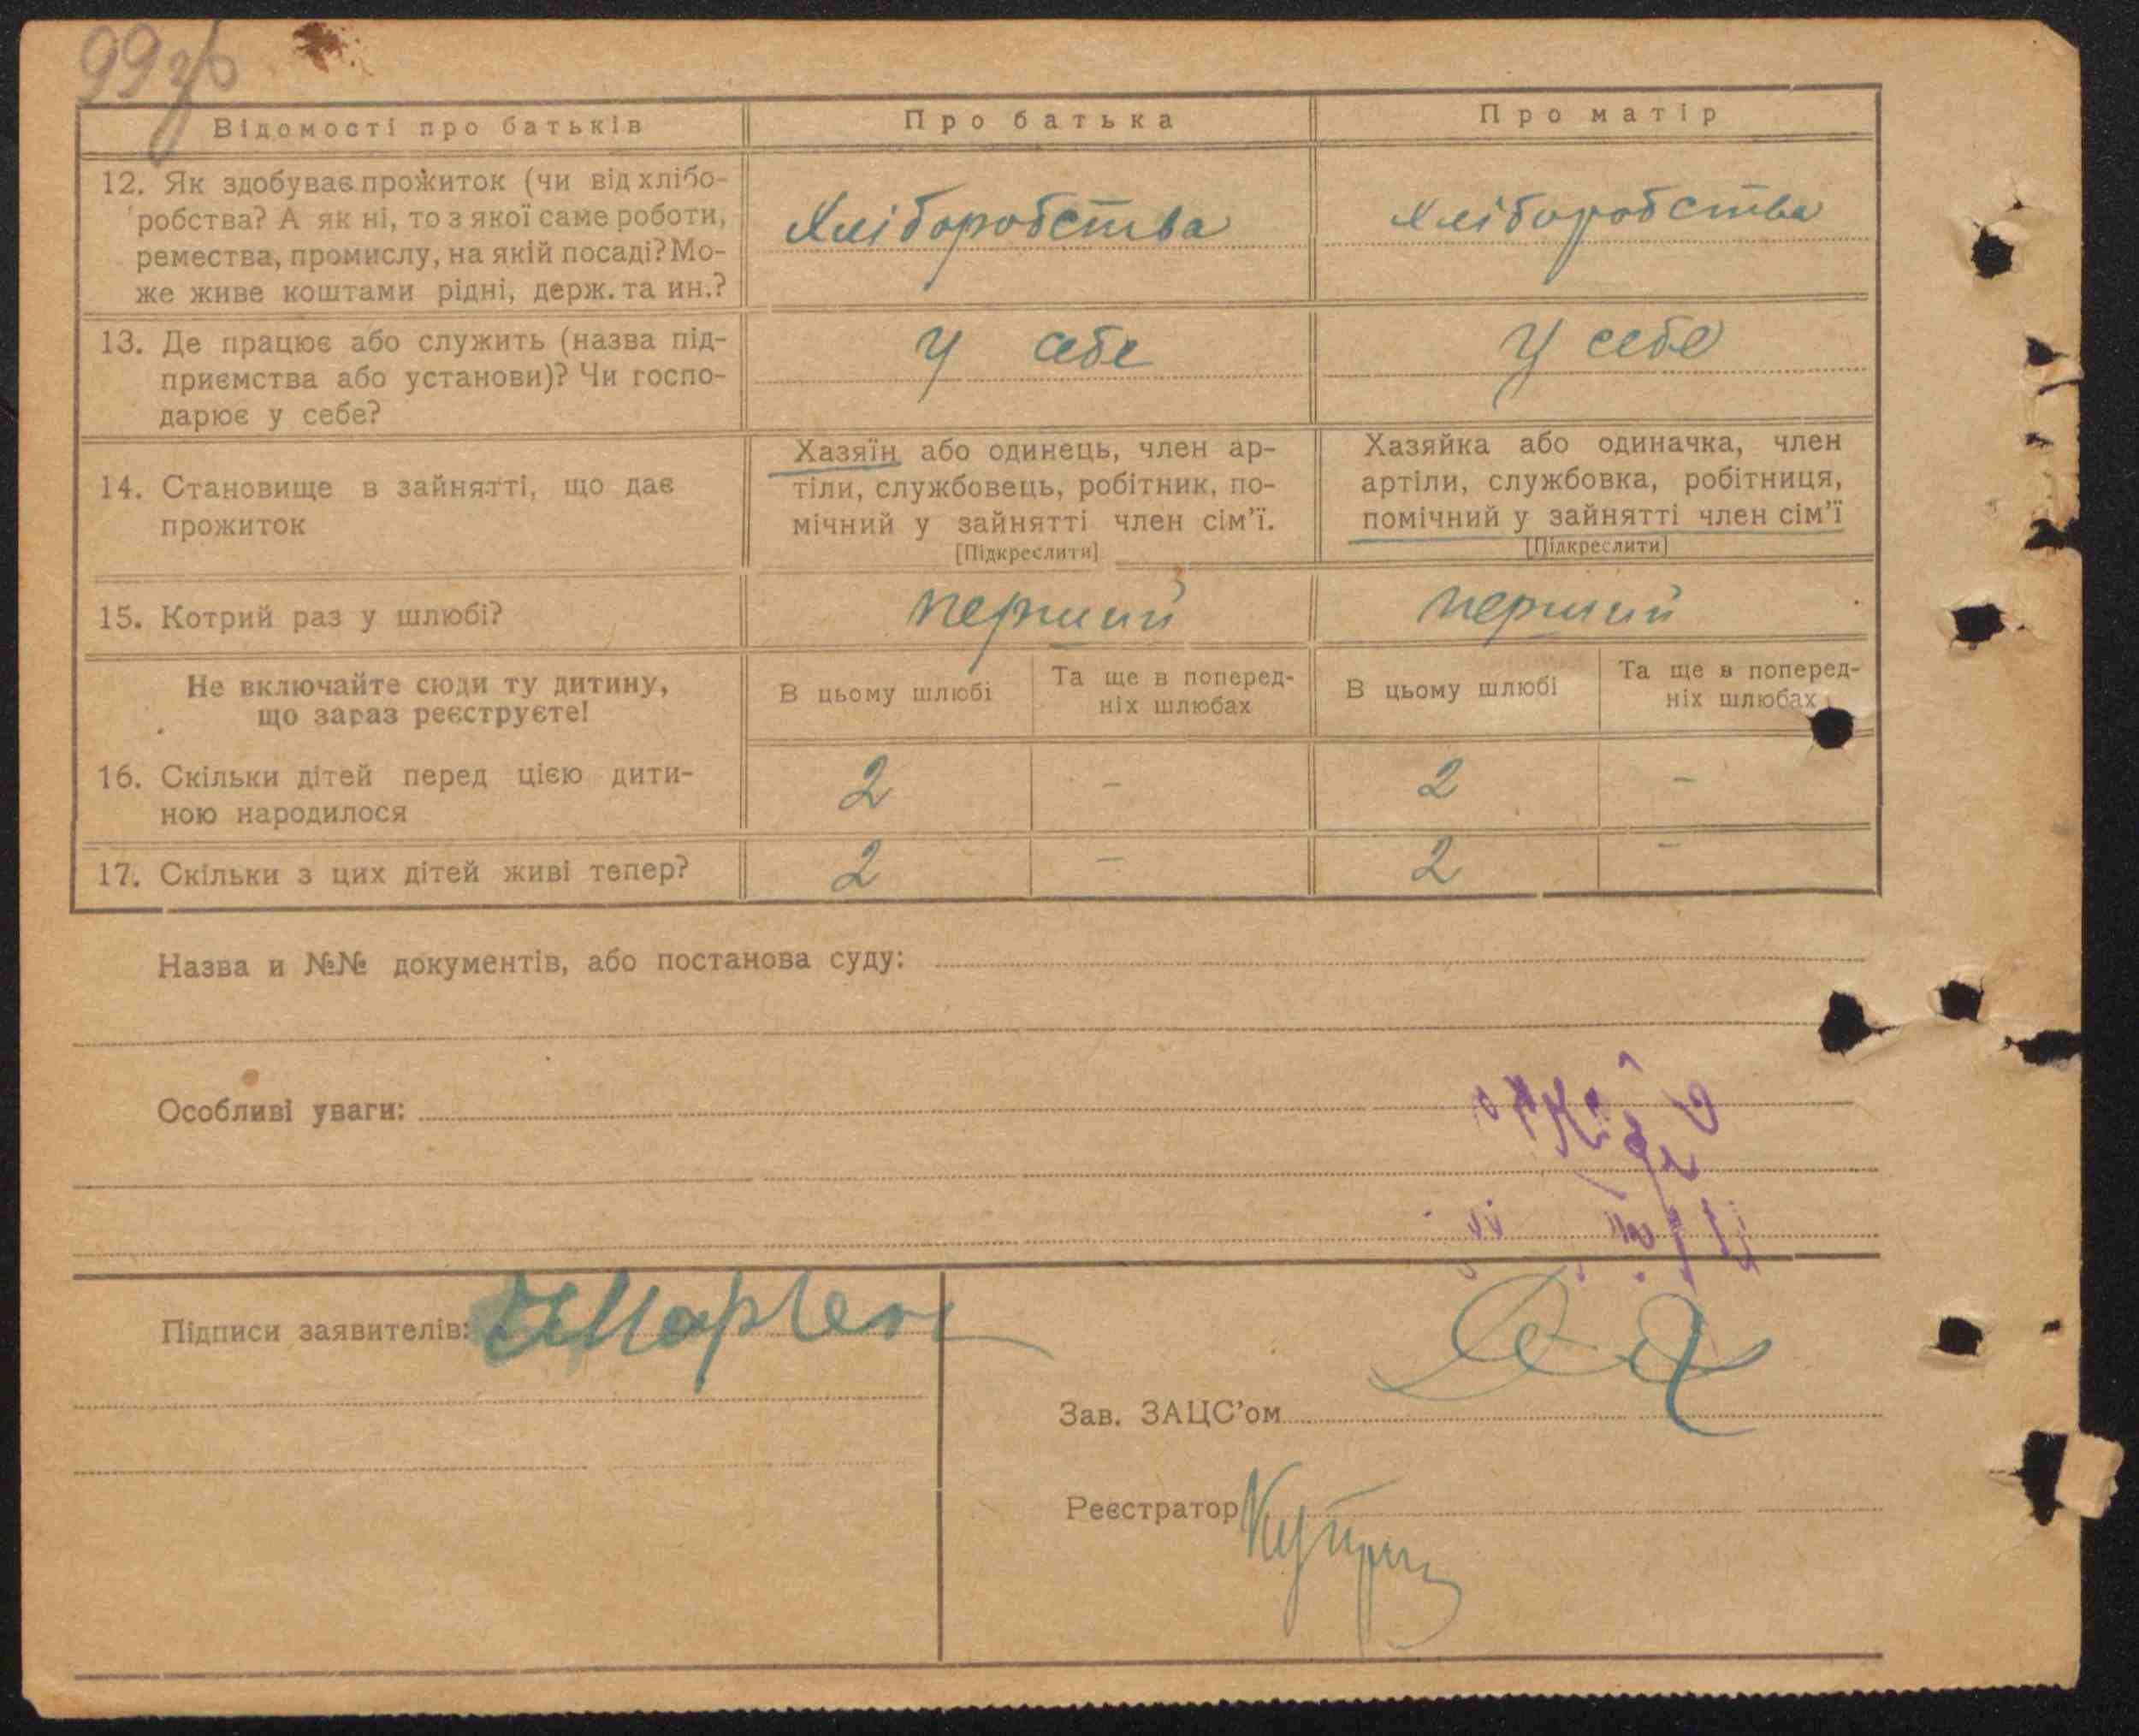 99зв
Відомості про батьків
Про батька
Про матір
12. Як здобуває прожиток (чи від хлібо-
робства? А як ні, то з якої саме роботи,
ремества, промислу, на якій посаді? Мо-
же живе коштами рідні, держ. та ин.?
Хліборобства
Хліборобства
13. Де працює або служить (назва під-
приємства або установи)? Чи госпо-
дарює у себе?
У себе
У себе
14. Становище в зайнятті, що дає
прожиток
Хазяїн або одинець, член ар-
тіли, службовець, робітник, по-
мічний у зайнятті член сім'ї.
[Підкреслити]
Хазяйка або одиначка, член
артіли, службовка, робітниця,
помічний у зайнятті член сім'ї
[Підкреслити]
15. Котрий раз у шлюбі?
перший
перший
Не включайте сюди ту дитину,
що зараз реєструєте!
В цьому шлюбі
Та ще в поперед-
ніх шлюбах
В цьому шлюбі
Та ще в поперед-
ніх шлюбах
16. Скільки дітей перед цією дити-
ною народилося
2 - 2 -
17. Скільки з цих дітей живі тепер?
2 - 2 -
Назва и №№ документів, або постанова суду:
Особливі уваги:
Підписи заявителів:
Зав. ЗАЦС'ом
Реєстратор